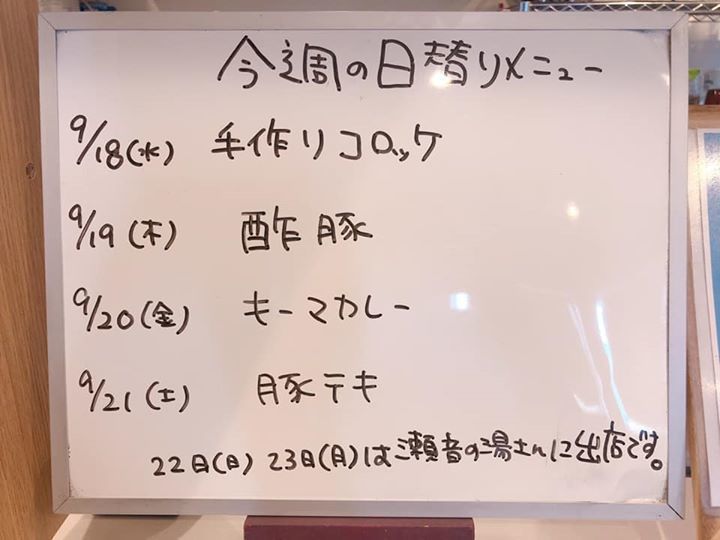 今週の日替りメニュー
9/18(水) 手作りコロッケ
9/19(木) 酢豚
9/20(金) キーマカレー
9/21(土) 豚テキ
22日(日) 23日(月)は瀬音の湯さんに出店です。